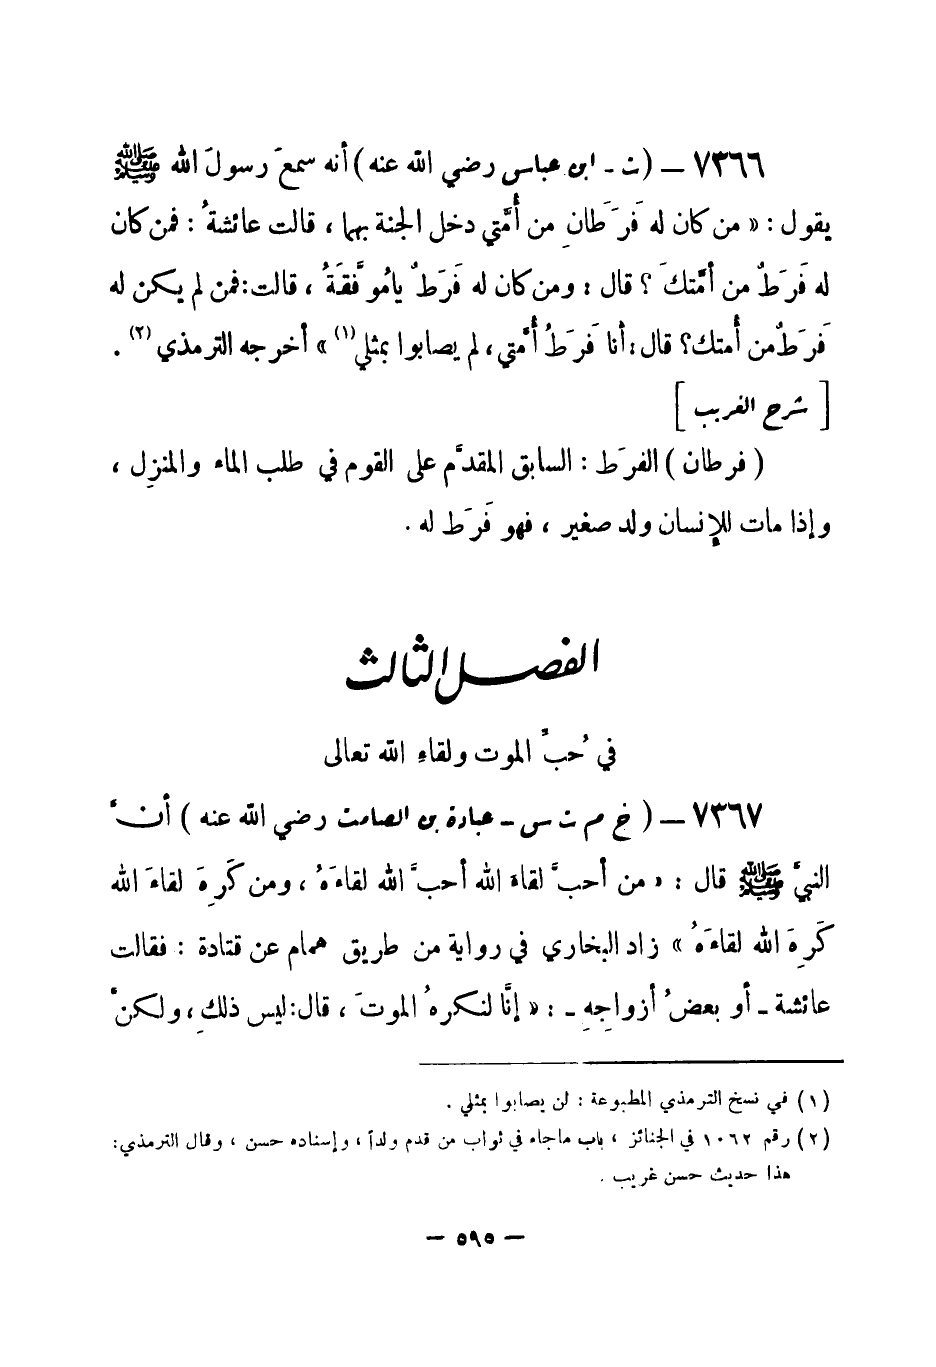 ٧٣٦٦ – (ت - ابن عباس رضي الله عنه) أنه سمعَ رسولَ الله ﷺ
يقول : « من كان له فَرَطانِ من أُمَّتي دخل الجنة بهما ، قالت عائشةُ : فمن كان
له فَرَطٌ من أمَّتكَ ؟ قال : ومن كان له فَرَطٌ يا مُوفَّقَةُ ، قالت : فمن لم يكن له
فَرَطٌ من أُمتك؟ قال : أنا فَرَطُ أُمَّتي ، لم يصابوا بمثلي(١) » أخرجه الترمذي(٢) .
[ شرح الغريب ]
( فرطان ) الفرَط : السابق المقدَّم على القوم في طلب الماء والمنزِل ،
وإذا مات للإنسان ولد صغير ، فهو فَرَط له .
الفصل الثالث
في حُبِّ الموت ولقاءِ الله تعالى
٧٣٦٧ – ( خ م ت س - عبادة بن الصامت رضي الله عنه ) أنَّ
النبيَّ ﷺ قال : « من أحبَّ لقاءَ الله أحبَّ الله لقاءَهُ ، ومن كَرِهَ لقاءَ الله
كَرِهَ الله لقاءَهُ » زاد البخاري في رواية من طريق همام عن قتادة : فقالت
عائشة - أو بعضُ أزواجِهِ - : « إنَّا لنكرهُ الموتَ ، قال : ليس ذلكِ ، ولكنَّ
(١) في نسخ الترمذي المطبوعة : لن يصابوا بمثلي .
(٢) رقم ١٠٦٢ في الجنائز ، باب ماجاء في ثواب من قدم ولداً ، وإسناده حسن ، وقال الترمذي :
هذا حديث حسن غريب .
– ٥٩٥ –